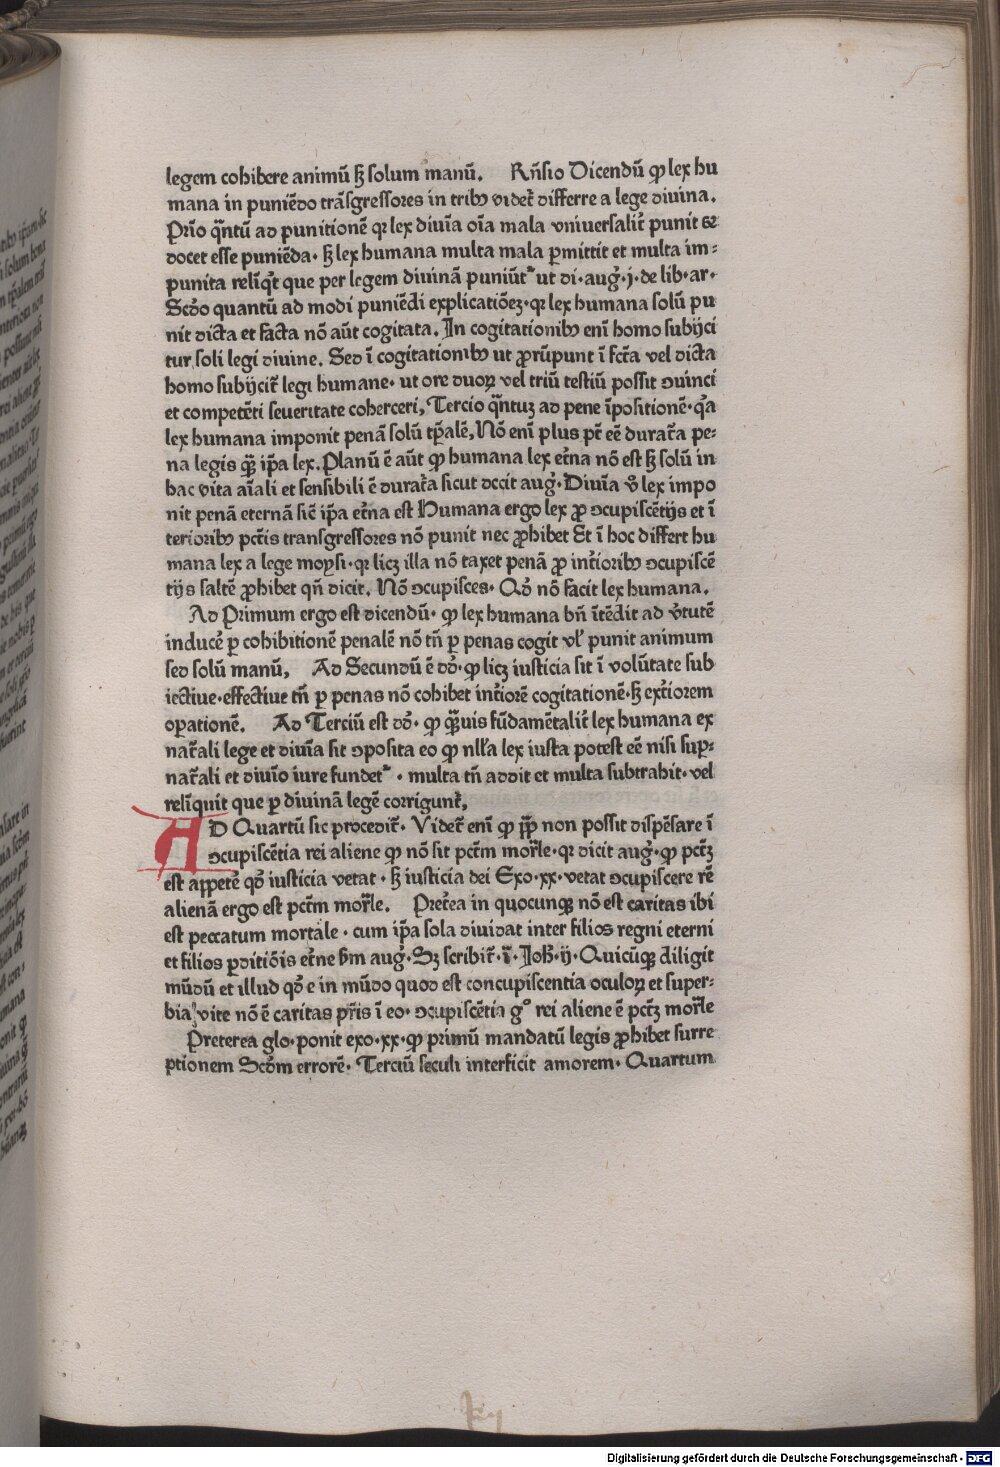 legem cohibere animū sꝫ solum manū. Rn̄sio Dicendū ꝙ lex hu
mana in puniēdo trāsgressores in tribꝰ videt᷑ differre a lege diuina.
Prīo q̄ntū ad punitionē qꝛ lex diuīa oīa mala vniuersalit᷑ punit et
docet esse puniēda· sꝫ lex humana multa mala ꝑmittit et multa im⸗
punita relīqt᷑ que per legem diuinā puniūt᷑ ut di· aug᷑· j· de lib· ar·
Scd̄o quantū ad modi puniēdi explicatiōeꝫ· qꝛ lex humana solū pu
nit dicta et facta nō aūt cogitata. In cogitationibꝰ enī homo subijci
tur soli legi diuine. Sed ī cogitationibꝰ ut ꝓrūpunt ī fc̄ta vel dicta
homo subijcit᷑ legi humane· ut ore duoꝝ vel triū testiū possit ꝯuinci
et competēti seueritate coherceri, Tercio q̄ntuꝫ ad pene īpositionē· q᷑a
lex humana imponit penā solū tp̄alē, Nō enī plus pt᷑ eē durat᷑a pe⸗
na legis q̄ꝫ ip̄a lex. Planū ē aūt ꝙ humana lex et᷑na nō est sꝫ solū in
hac vita aīali et sensibili ē durat᷑a sicut docit aug᷑· Diuīa v᷑o lex impo
nit penā eternā sic̄ ip̄a et᷑na est Humana ergo lex ꝓ ꝯcupiscētijs et ī
terioribꝰ pctīs transgressores nō punit nec ꝓhibet Et ī hoc differt hu
mana lex a lege moysi· qꝛ licꝫ illa nō taxet penā ꝓ int᷑ioribꝰ ꝯcupiscē
tijs saltē ꝓhibet qn̄ dicit. Nō ꝯcupisces· Qd᷑ nō facit lex humana.
Ad Primum ergo est dicendū· ꝙ lex humana bn̄ ītēdit ad v᷑tutē
induce᷑ ꝑ cohibitionē penalē nō tn̄ ꝑ penas cogit vl᷑ punit animum
sed solū manū, Ad Secundū ē dō· ꝙ licꝫ iusticia sit ī volūtate sub
iectiue· effectiue tn̄ ꝑ penas nō cohibet int᷑iorē cogitationē· sꝫ ext᷑iorem
oꝑationē. Ad Terciū est dō· ꝙ q̄ꝫuis fūdamētalit᷑ lex humana ex
nat᷑ali lege et diuīa sit ꝯposita eo ꝙ nll᷑a lex iusta potest eē nisi suꝑ⸗
nat᷑ali et diuīo iure fundet᷑· multa tn̄ addit et multa subtrahit· vel
relīquit que ꝑ diuinā legē corrigunt᷑,
AD Quartū sic procedit᷑· Videt᷑ enī ꝙ pp̄ non possit dispēsare ī
ꝯcupiscētia rei aliene ꝙ nō sit pct̄m mor᷑le· qꝛ dicit aug᷑· ꝙ pct̄ꝫ
est appete᷑ qd᷑ iusticia vetat· sꝫ iusticia dei Exo·xx· vetat ꝯcupiscere rē
alienā ergo est pct̄m mor᷑le. Pret᷑ea in quocunqꝫ nō est caritas ibi
est peccatum mortale· cum ip̄a sola diuidat inter filios regni eterni
et filios ꝑditiōis et᷑ne sm̄ aug᷑· Sꝫ scribit᷑· ī· Joh᷑· ij· Quicūqꝫ diligit
mūdū et illud qd᷑ e in mūdo quod est concupiscentia oculoꝝ et super⸗
bia vite nō ē caritas pr̄is ī eo· ꝯcupiscētia gᵒ rei aliene ē pct̄ꝫ mor᷑le
Preterea glo· ponit exo·xx· ꝙ primū mandatū legis ꝓhibet surre
ptionem Scd̄m errorē· Terciū seculi interficit amorem· Quartum
Digitalisierung gefördert durch die Deutsche Forschungsgemeinschaft - DFG